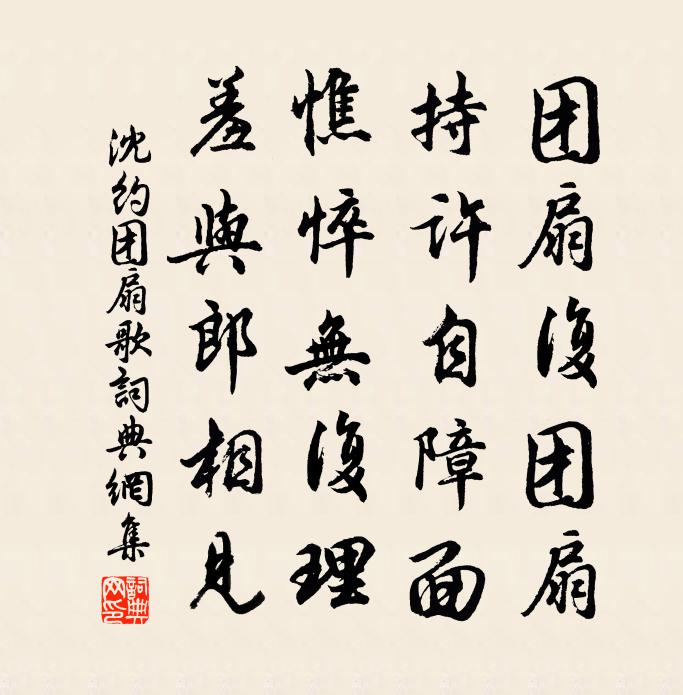 团扇復团扇
持许自障面
憔悴無復理
羞與郎相見
沈约团扇歌詞典網集
詞典网印